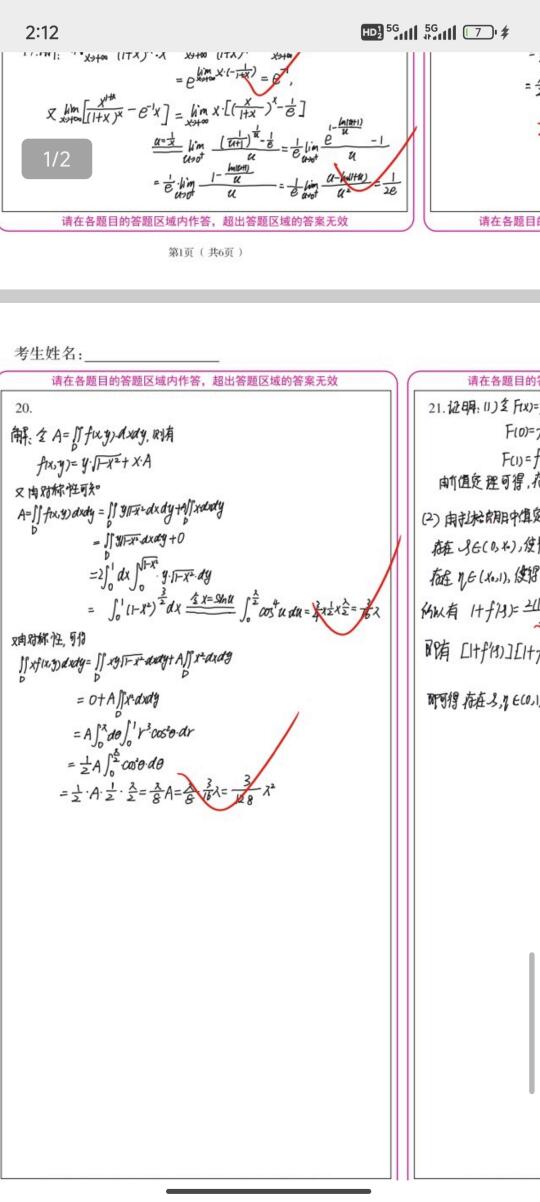 2:12
HD 5G 5G 7
= e^{lim_{x→+∞} x·(-1/(1+x))} = e^{-1},
又 lim_{x→+∞} [x^{1+x}/(1+x)^x - e^{-1}x] = lim_{x→+∞} x·[(x/(1+x))^x - 1/e]
u=1/x lim_{u→0+} ((1/(u+1))^{1/u} - 1/e)/u = 1/e lim_{u→0+} (e^{1-ln(1+u)/u} - 1)/u
= 1/e·lim_{u→0+} (1 - ln(1+u)/u)/u = 1/e lim_{u→0+} (u-ln(1+u))/u² = 1/2e
1/2
请在各题目的答题区域内作答，超出答题区域的答案无效
请在各题目的
第1页（ 共6页 ）
考生姓名:
请在各题目的答题区域内作答，超出答题区域的答案无效
20.
解: 令 A=∬_D f(x,y) dxdy, 则有
f(x,y)=y·√(1-x²)+x·A
又由对称性可知
A=∬_D f(x,y)dxdy=∬_D y√(1-x²)dxdy+A∬_D xdxdy
=∬_D y√(1-x²)dxdy+0
=2∫_0^1 dx∫_0^{√(1-x²)} y·√(1-x²)·dy
= ∫_0^1 (1-x²)^{3/2} dx 令x=sinu ∫_0^{π/2} cos⁴u du=3/4×1/2×π/2=3/16π
又由对称性, 可得
∬_D xf(x,y)dxdy=∬_D xy√(1-x²)dxdy+A∬_D x²dxdy
= 0+A∬_D x²dxdy
=A∫_0^π dθ∫_0^1 r³cos²θ·dr
=1/2A∫_0^{π/2} cos²θ·dθ
=1/2·A·1/2·π/2=π/8A=π/8·3/16π=3/128 π²
请在各题目的答
21. 证明: (1)令F(x)=
F(0)=
F(1)=f
由介值定理可得, 存
(2) 由拉格朗日中值定
存在 ξ∈(0,x₀), 使得
存在 η∈(x₀,1), 使得
所以有 1+f'(ξ)=
即有 [1+f'(ξ)][1+
即可得 存在ξ,η∈(0,1